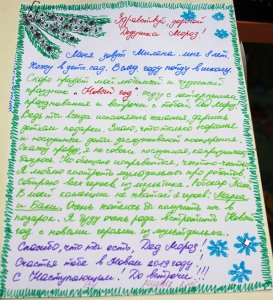 Здравствуй дорогой
Дедушка Мороз!
Меня зовут Милана мне 6 лет.
Хожу в детский сад. В след году пойду в школу.
Скоро придёт мой любимый и чудесный
праздник "Новый год" жду с нетерпением
празднования и встречи с тобой, Дед Мороз!
Ведь ты всегда исполняешь желания, даришь
деткам подарки. Знаю, что только хорошие
и послушные дети заслуживают поощрения.
Скажу правду, я не совсем
Но обещаю исправиться, честно-честно!
Я люблю смотреть мультфильмы про роботов
собираю всех героев из мультика. Робокар Поли
У моей коллекции не хватает героев: Марка
и Баки. Очень хотелось бы получить их в
подарок. Я буду очень рада встретить Новый
год с новыми героями из мультфильма.
Спасибо, что ты есть, Дед Мороз!
Счастья тебе в Новом 2019 году
С Наступающим! До встречи!!!